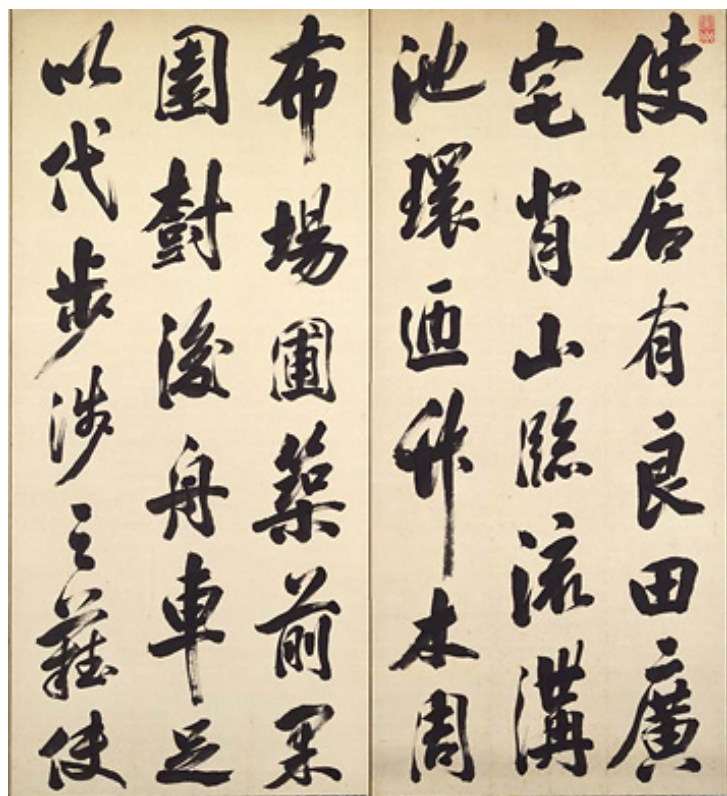 使居有良田廣
宅背山臨流溝
池環迊竹木周
布場圃築前果
園樹後舟車足
以代步涉之難使